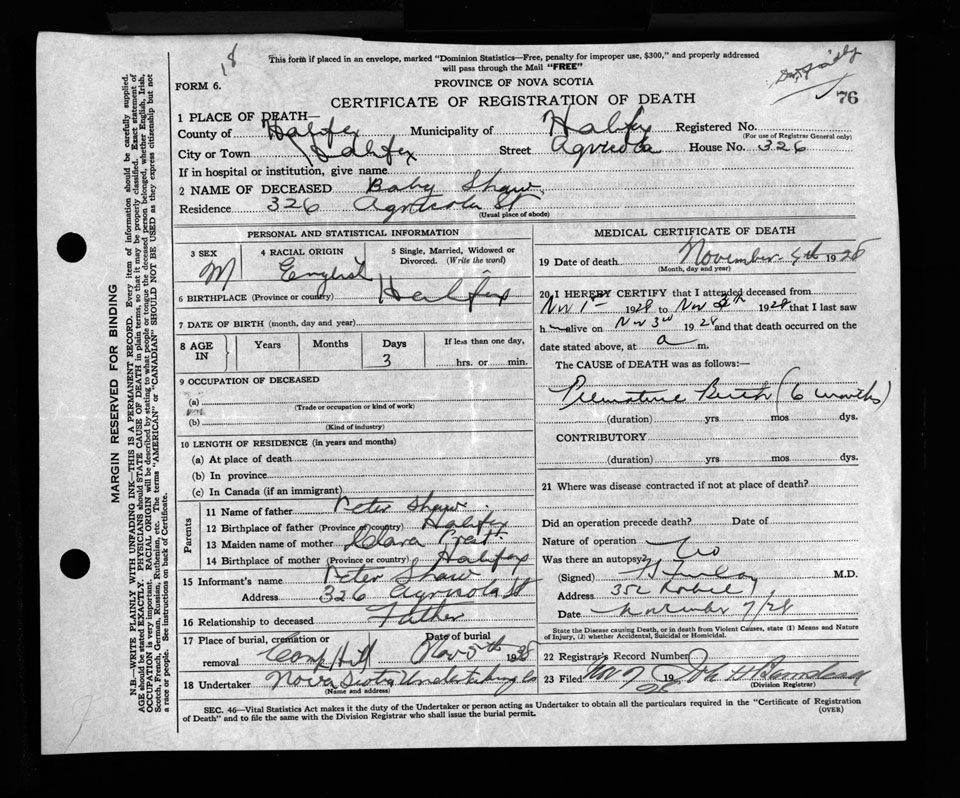 18
This form if placed in an envelope, marked "Dominion Statistics—Free, penalty for improper use, $300," and properly addressed
will pass through the Mail "FREE"
FORM 6.
PROVINCE OF NOVA SCOTIA
CERTIFICATE OF REGISTRATION OF DEATH
76
1 PLACE OF DEATH—
County of Halifax Municipality of Halifax Registered No.
(For use of Registrar General only)
City or Town Halifax Street Agricola House No. 326
If in hospital or institution, give name
2 NAME OF DECEASED Baby Shaw
Residence 326 Agricola St
(Usual place of abode)
PERSONAL AND STATISTICAL INFORMATION
3 SEX 4 RACIAL ORIGIN 5 Single, Married, Widowed or
Divorced. (Write the word)
M English
6 BIRTHPLACE (Province or country) Halifax
7 DATE OF BIRTH (month, day and year)
8 AGE IN Years Months Days If less than one day,
3 hrs. or min.
9 OCCUPATION OF DECEASED
(a)
(Trade or occupation or kind of work)
(b)
(Kind of industry)
10 LENGTH OF RESIDENCE (in years and months)
(a) At place of death
(b) In province
(c) In Canada (if an immigrant)
Parents
11 Name of father Peter Shaw
12 Birthplace of father (Province or country) Halifax
13 Maiden name of mother Clara Pratt
14 Birthplace of mother (Province or country) Halifax
15 Informant's name Peter Shaw
Address 326 Agricola St
16 Relationship to deceased Father
17 Place of burial, cremation or Date of burial
removal Camp Hill Nov 5th 1928
18 Undertaker Nova Scotia Undertaking Co
(Name and address)
MEDICAL CERTIFICATE OF DEATH
19 Date of death November 4th 1928
(Month, day and year)
20 I HEREBY CERTIFY that I attended deceased from
Nov 1st 1928 to Nov 1928 that I last saw
h alive on Nov 3rd 1928 and that death occurred on the
date stated above, at a m.
The CAUSE of DEATH was as follows:—
Premature Birth (6 months)
(duration) yrs mos dys.
CONTRIBUTORY
(duration) yrs mos dys.
21 Where was disease contracted if not at place of death?
Did an operation precede death? Date of
Nature of operation
Was there an autopsy? No
(Signed) M.D.
Address 352 Robie
Date November 7/28
State the Disease causing Death, or in death from Violent Causes, state (1) Means and Nature
of Injury, (2) whether Accidental, Suicidal or Homicidal.
22 Registrar's Record Number
23 Filed Nov 7 1928 John W
(Division Registrar)
SEC. 46—Vital Statistics Act makes it the duty of the Undertaker or person acting as Undertaker to obtain all the particulars required in the "Certificate of Registration
of Death" and to file the same with the Division Registrar who shall issue the burial permit.
(OVER)
MARGIN RESERVED FOR BINDING
N.B.—WRITE PLAINLY WITH UNFADING INK—THIS IS A PERMANENT RECORD. Every item of information should be carefully supplied.
AGE should be stated EXACTLY. PHYSICIANS should STATE CAUSE OF DEATH in plain terms, so that it may be properly classified. Exact statement of
OCCUPATION is very important. RACIAL ORIGIN will be described by stating to what people or tongue the deceased person belonged, whether English, Irish,
Scotch, French, German, Russian, Ruthenian, etc. The terms "AMERICAN" or "CANADIAN" SHOULD NOT BE USED as they express citizenship but not
a race or people. See instructions on back of Certificate.